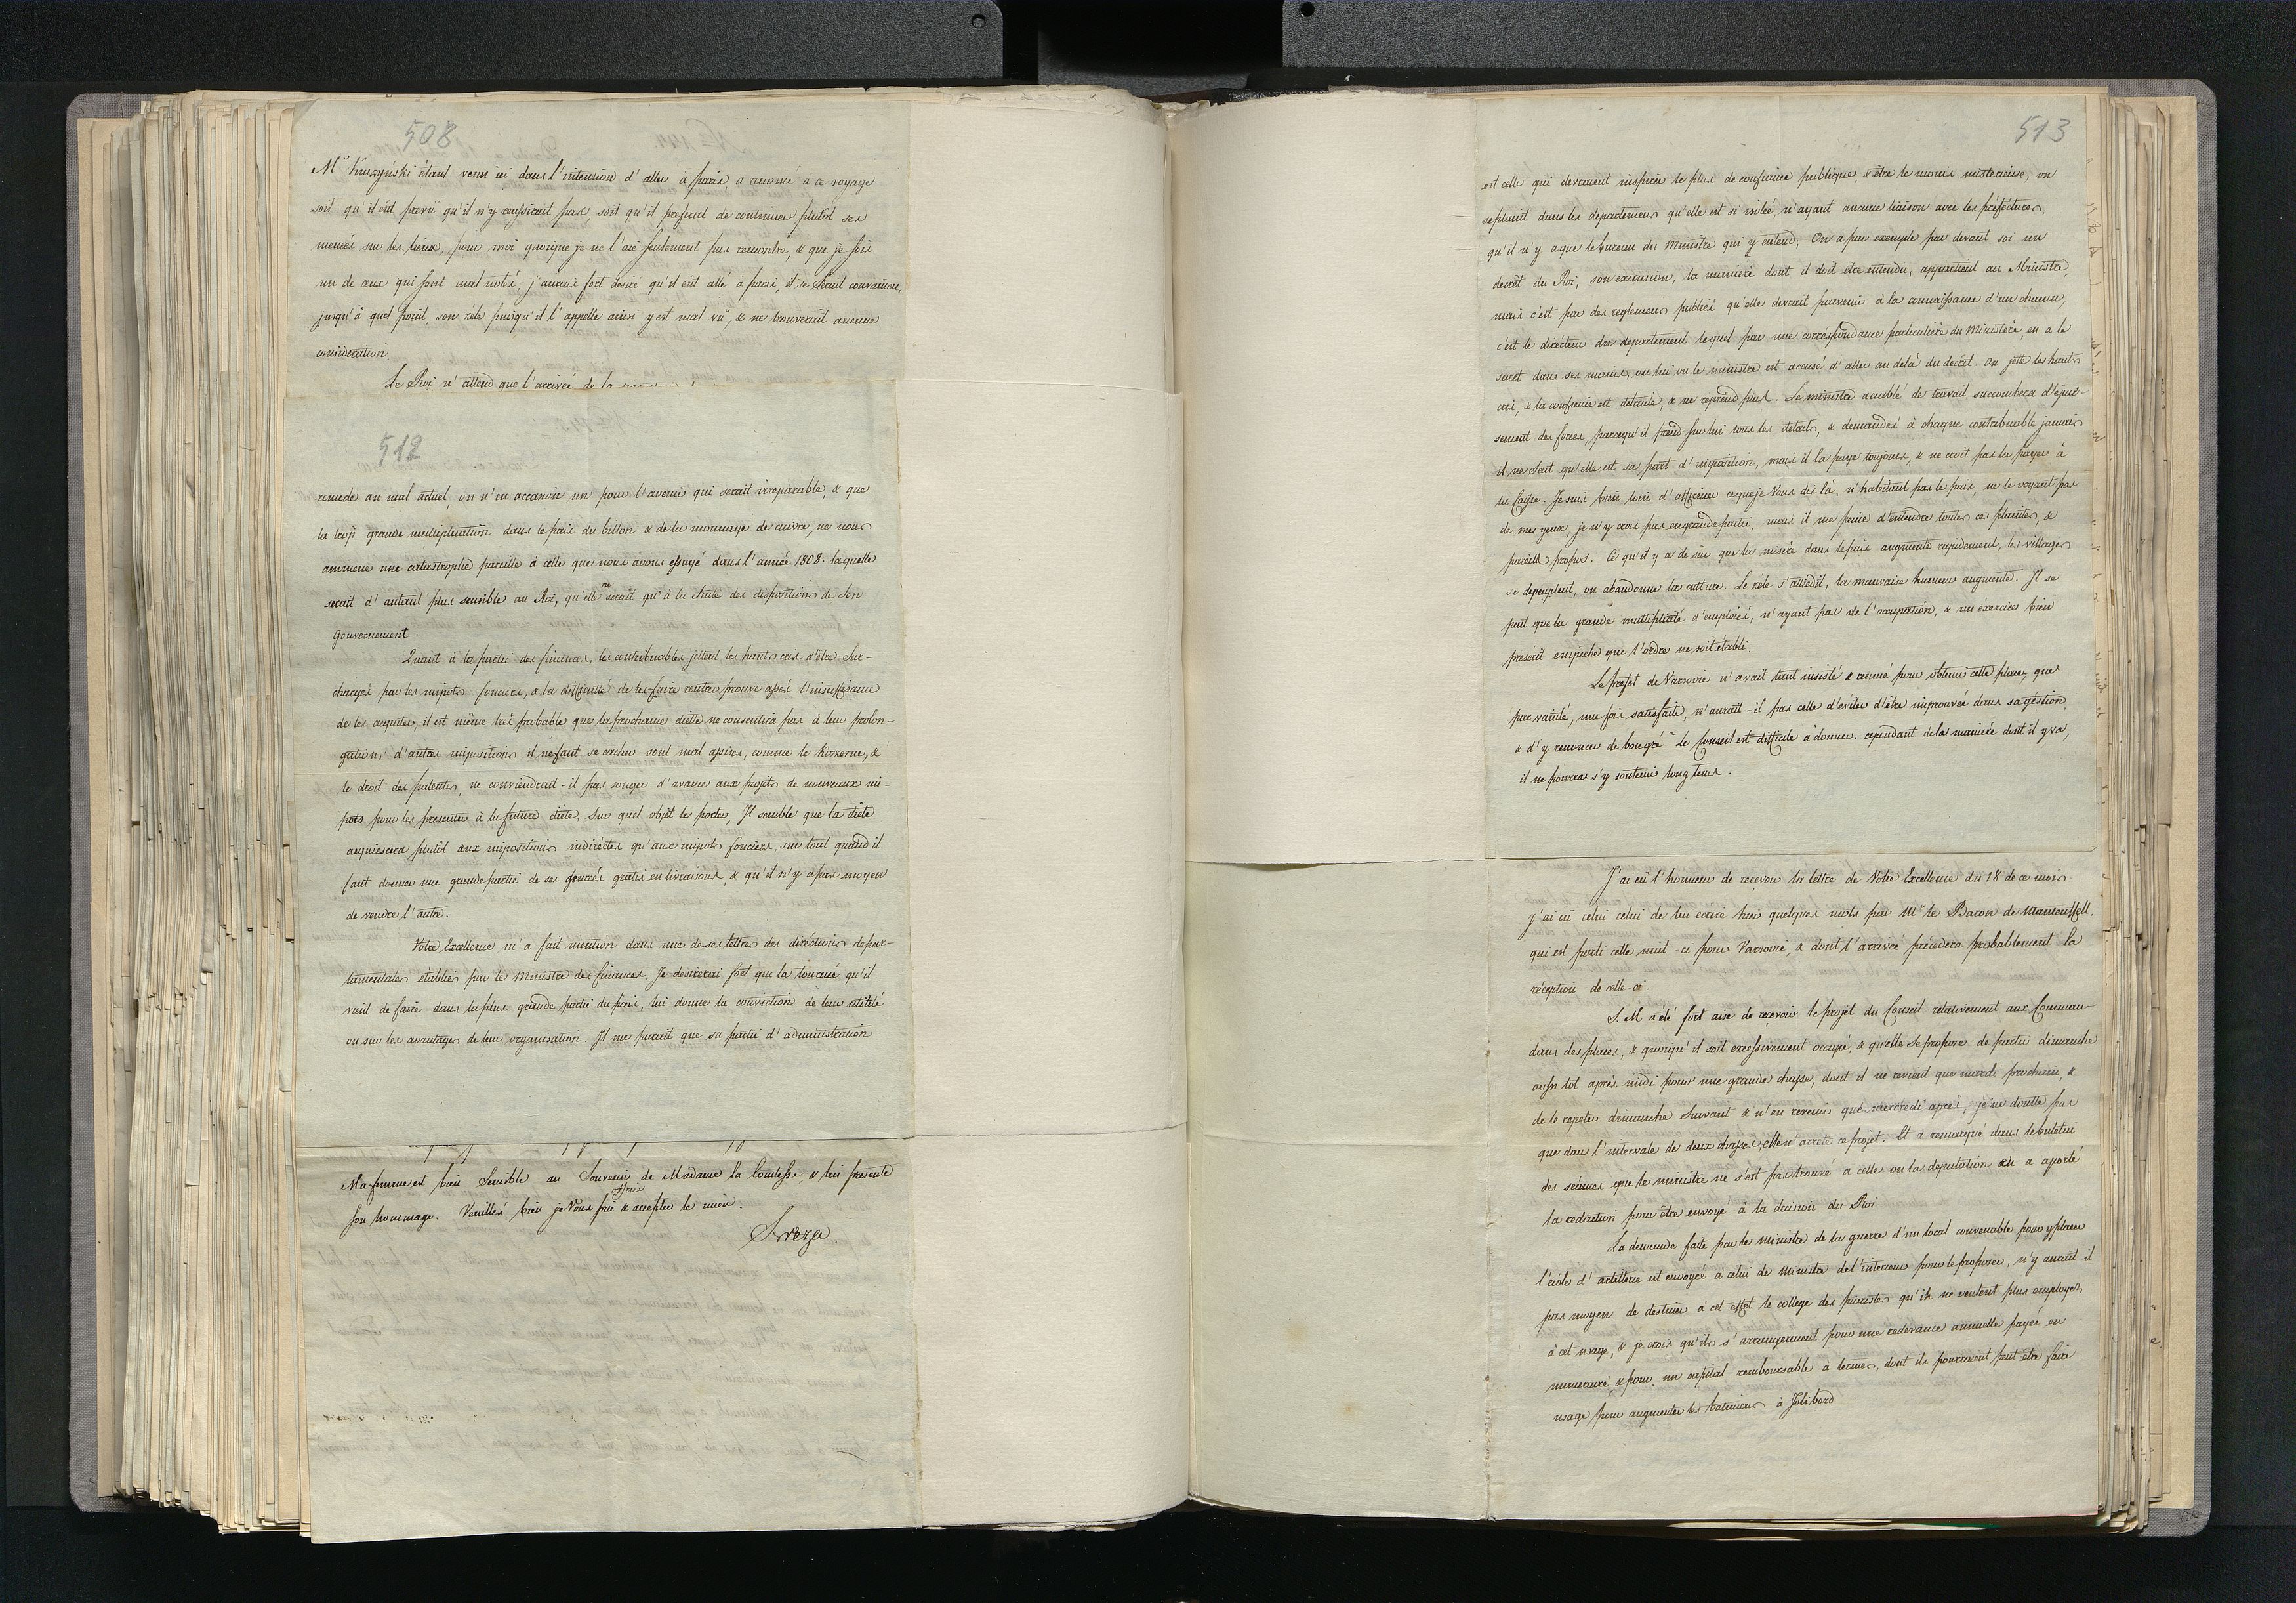 508
Mr Kuczyński étant venu ici dans l'intention d'aller à paris a renoncé à ce voyage
soit qu'il eût prevû qu'il n'y reussirait pas, soit qu'il preferât de continuer plutôt ses
menées sur les lieux, pour moi quoique je ne l'aie seulement pas rencontré, & que je sois
un de ceux qui sont mal notés, j'aurais fort desiré qu'il eût allé à paris, il se serait convaincu,
jusqu'à quel point son zele puisqu'il l'appelle ainsi y est mal vû, & ne trouverait aucune
consideration.
Le Roi n'attend que l'arrivée de la
512
remede au mal actuel, on n'en occasion un pour l'avenir qui serait irreparable, & que
la trop grande multiplication dans le païs du billon & de la monnaye de cuivre, ne nous
ammene une catastrophe pareille à celle que nous avons essuyé dans l'année 1808. laquelle
serait d'autant plus sensible au Roi, qu'elle ne serait qu'à la suite des dispositions de son
gouvernement.
Quant à la partie des finances, les contribuables jettent les hauts cris d'être sur-
chargés par les impots fonciers, & la difficulté de les faire rentrer prouve assés l'insuffisance
de les acquiter, il est même très probable que la prochaine diette ne consentira pas à leur prolon-
gation; d'autres impositions il ne faut se cacher sont mal assises, comme le Koszerne, &
le droit des patentes, ne conviendrait-il pas songer d'avance aux projets de nouveaux im-
pots pour les presenter à la future diète. Sur quel objêt les porter, Il semble que la diète
acquiescera plutôt aux impositions indirectes qu'aux impots fonciers, sur tout quand il
faut donner une grande partie de ses denrées gratis en livraisons, & qu'il n'y a pas moyen
de vendre l'autre.
Votre Excellence m'a fait mention dans une de ses lettres des directions depar-
tementales établies par le Ministre des finances. Je desirerai fort que la tournée qu'il
vient de faire dans la plus grande partie du païs, lui donne la conviction de leur utilité
ou sur les avantages de leur organisation. Il me parait que sa partie d'administration
Ma femme est bien sensible au Souvenir de Madame la Comtesse, & lui presente
son hommage. Veuillés bien je Vous prie & accepter le mien.
Breza.
513
est celle qui devraient inspirer le plus de confiance publique, & être le moins misterieuse; on
se plaint dans les departemens qu'elle est si isolée, n'ayant aucune liaison avec les préfectures,
qu'il n'y a que le bureau du Ministre qui y entend; On a par exemple par devant soi un
decrêt du Roi, son excursion, la maniere dont il doit être entendu, appartient au Ministre,
mais c'est par des reglemens publiés qu'elle devrait parvenir à la connaissance d'un chacun,
c'est le directeur du departement lequel par une correspondance particulière du Ministère, en a le
secret dans ses mains, ou lui ou le ministre est accusé d'aller au delà du decrêt. On jette les hauts
cris, & la confiance est detruite, & ne reprend plus. Le ministre accablé de travail succombera d'épui-
sement des forces, parcequ'il prend sur lui tous les details, & demandés à chaque contribuable jamais
il ne sait qu'elle est sa part d'imposition, mais il la paye toujours, & ne croit pas la payer à
la Caisse. Je suis bien loin d'affirmer ce que je Vous dis là, n'habitant pas le païs, ne le voyant pas
de mes yeux, je n'y crois pas en grande partie, mais il me peine d'entendre toutes ces plaintes, &
pareils propos. Ce qu'il y a de sûr que la misère dans le païs augmente rapidement, les villages
se depeuplent, on abandonne la culture. Le zèle s'attiedit, la mauvaise humeur augmente. Il se
peut que la grande multiplicité d'emploiés, n'ayant pas de l'occupation, & un exercice bien
prescrit empêche que l'ordre ne soit établi.
Le préfet de Varsovie n'avait tant insisté & remué pour obtenir cette place, que
par vanité, une fois satisfaite, n'aurait-il pas celle d'eviter d'être improuvée dans sa gestion,
& d'y renoncer de bongré. Le Conseil est difficile à donner. cependant de la manière dont il y va,
il ne pourra s'y soutenir long tems.
J'ai eû l'honneur de reçevoir la lettre de Votre Excellence du 18 de ce mois.
j'ai eû celui celui de lui ecrire hier quelques mots par Mr le Baron de Manteuffell.
qui est parti cette nuit-ci pour Varsovie, & dont l'arrivée précédera probablement la
réception de celle-ci.
S. M. a été fort aise de reçevoir le projet du Conseil relativement aux Comman-
dans des places, & quoiqu'il soit excessivement occupé, & qu'elle se propose de partir dimanche
aussi tot après midi pour une grande chasse, dont il ne revient que mardi prochain, &
de le repeter dimanche suivant & n'en revenir que mercredi après, je ne doutte pas
que dans l'intervale de deux chasses, elle n'arrete ce projet. Il a remarqué dans le bulletin
des séances que le ministre ne s'est pas trouvé à celle ou la deputation en a aporté
la redaction pour être envoyé à la decision du Roi
La demande faite par le Ministre de la guerre d'un local convenable pour y placer
l'école d'artillerie est envoyée à celui de Ministre de l'interieur pour le proposer, n'y aurait-il
pas moyen de destiner à cet effet le college des piaristes qu'ils ne veulent plus employer
à cet usage, & je crois qu'ils s'arrangeraient pour une redevance annuelle payée en
numeraire, & pour un capital remboursable à termes, dont ils pourraient peut être faire
usage pour augmenter les batimens à Jolibord